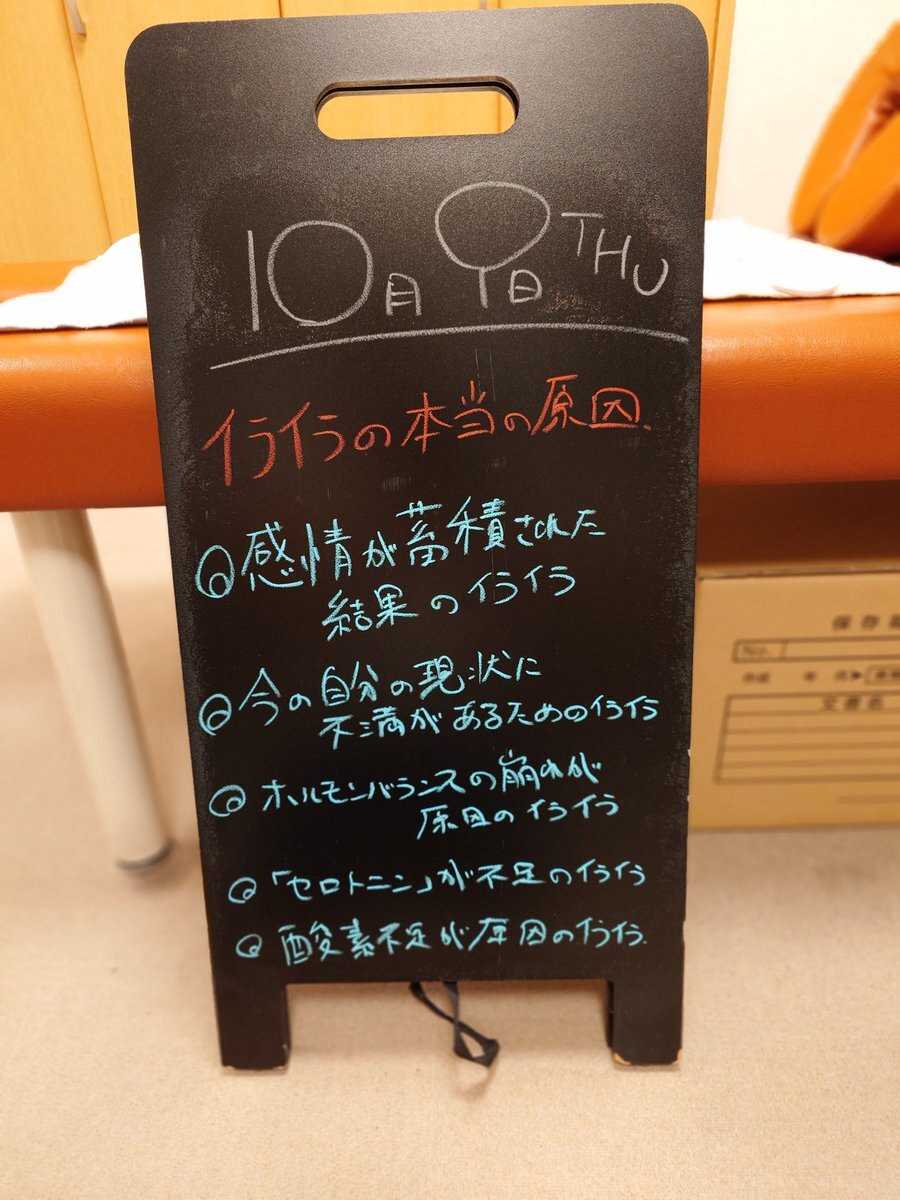 10月9日 THU
イライラの本当の原因.
◎感情が蓄積された
結果のイライラ
◎今の自分の現状に
不満があるためのイライラ
◎ホルモンバランスの崩れが
原因のイライラ
◎「セロトニン」が不足のイライラ
◎酸素不足が原因のイライラ.
保存
No.
作成 年 月
文書名